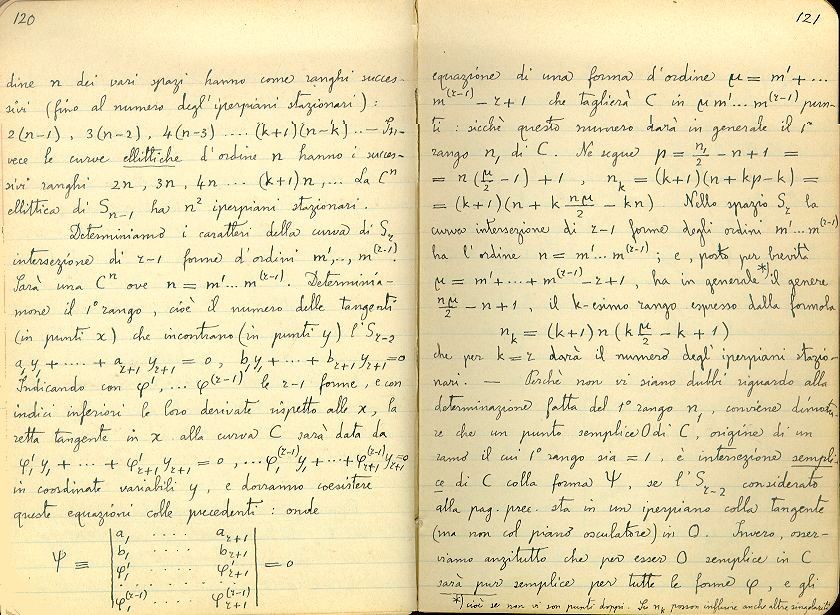 120
dine n dei vari spazi hanno come ranghi succes-
sivi (fino al numero degl' iperpiani stazionari):
2(n-1), 3(n-2), 4(n-3) .... (k+1)(n-k).. — In-
vece le curve ellittiche d'ordine n hanno i succes-
sivi ranghi 2n, 3n, 4n ... (k+1)n, ... La Cⁿ
ellittica di Sₙ₋₁ ha n² iperpiani stazionari.
Determiniamo i caratteri della curva di Sᵣ
intersezione di r-1 forme d'ordini m',.., m⁽ʳ⁻¹⁾.
Sarà una Cⁿ ove n = m'... m⁽ʳ⁻¹⁾. Determinia-
mone il 1° rango, cioè il numero delle tangenti
(in punti x) che incontrano (in punti y) l'Sᵣ₋₂
a₁y₁ + .... + aᵣ₊₁ yᵣ₊₁ = 0, b₁y₁ + ... + bᵣ₊₁ yᵣ₊₁ = 0
Indicando con φ', ... φ⁽ʳ⁻¹⁾ le r-1 forme, e con
indici inferiori le loro derivate rispetto alle x, la
retta tangente in x alla curva C sarà data da
φ'₁y₁ + ... + φ'ᵣ₊₁ yᵣ₊₁ = 0, ... φ₁⁽ʳ⁻¹⁾y₁ + ... + φᵣ₊₁⁽ʳ⁻¹⁾yᵣ₊₁ = 0
in coordinate variabili y, e dovranno coesistere
queste equazioni colle precedenti: onde
Ψ ≡ | a₁ ..... aᵣ₊₁ |
| b₁ ..... bᵣ₊₁ |
| φ'₁ ..... φ'ᵣ₊₁ |
| ............ |
| φ₁⁽ʳ⁻¹⁾ .... φᵣ₊₁⁽ʳ⁻¹⁾ | = 0
121
equazione di una forma d'ordine μ = m' + ...
m⁽ʳ⁻¹⁾ - r + 1 che taglierà C in μ m'... m⁽ʳ⁻¹⁾ pun-
ti: sicchè questo numero darà in generale il 1°
rango n₁ di C. Ne segue p = n₁/2 - n + 1 =
= n (μ/2 - 1) + 1, nₖ = (k+1)(n + kp - k) =
= (k+1)(n + k nμ/2 - kn) Nello spazio Sᵣ la
curva intersezione di r-1 forme degli ordini m'... m⁽ʳ⁻¹⁾
ha l'ordine n = m'... m⁽ʳ⁻¹⁾; e, posto per brevità
μ = m' + ... + m⁽ʳ⁻¹⁾ - r + 1, ha in generale *) il genere
nμ/2 - n + 1, il k-esimo rango espresso dalla formola
nₖ = (k+1) n (k μ/2 - k + 1)
che per k = r darà il numero degl' iperpiani stazio-
nari. — Perchè non vi siano dubbi riguardo alla
determinazione fatta del 1° rango n₁, conviene dimostra-
re che un punto semplice O di C, origine di un
ramo il cui 1° rango sia = 1, è intersezione sempli-
ce di C colla forma Ψ, se l'Sᵣ₋₂ considerato
alla pag. prec. sta in un iperpiano colla tangente
(ma non col piano osculatore) in O. Invero, osser-
viamo anzitutto che per esser O semplice in C
sarà pur semplice per tutte le forme φ, e gli
*) cioè se non vi son punti doppi. Su nₖ posson influire anche altre singolarità